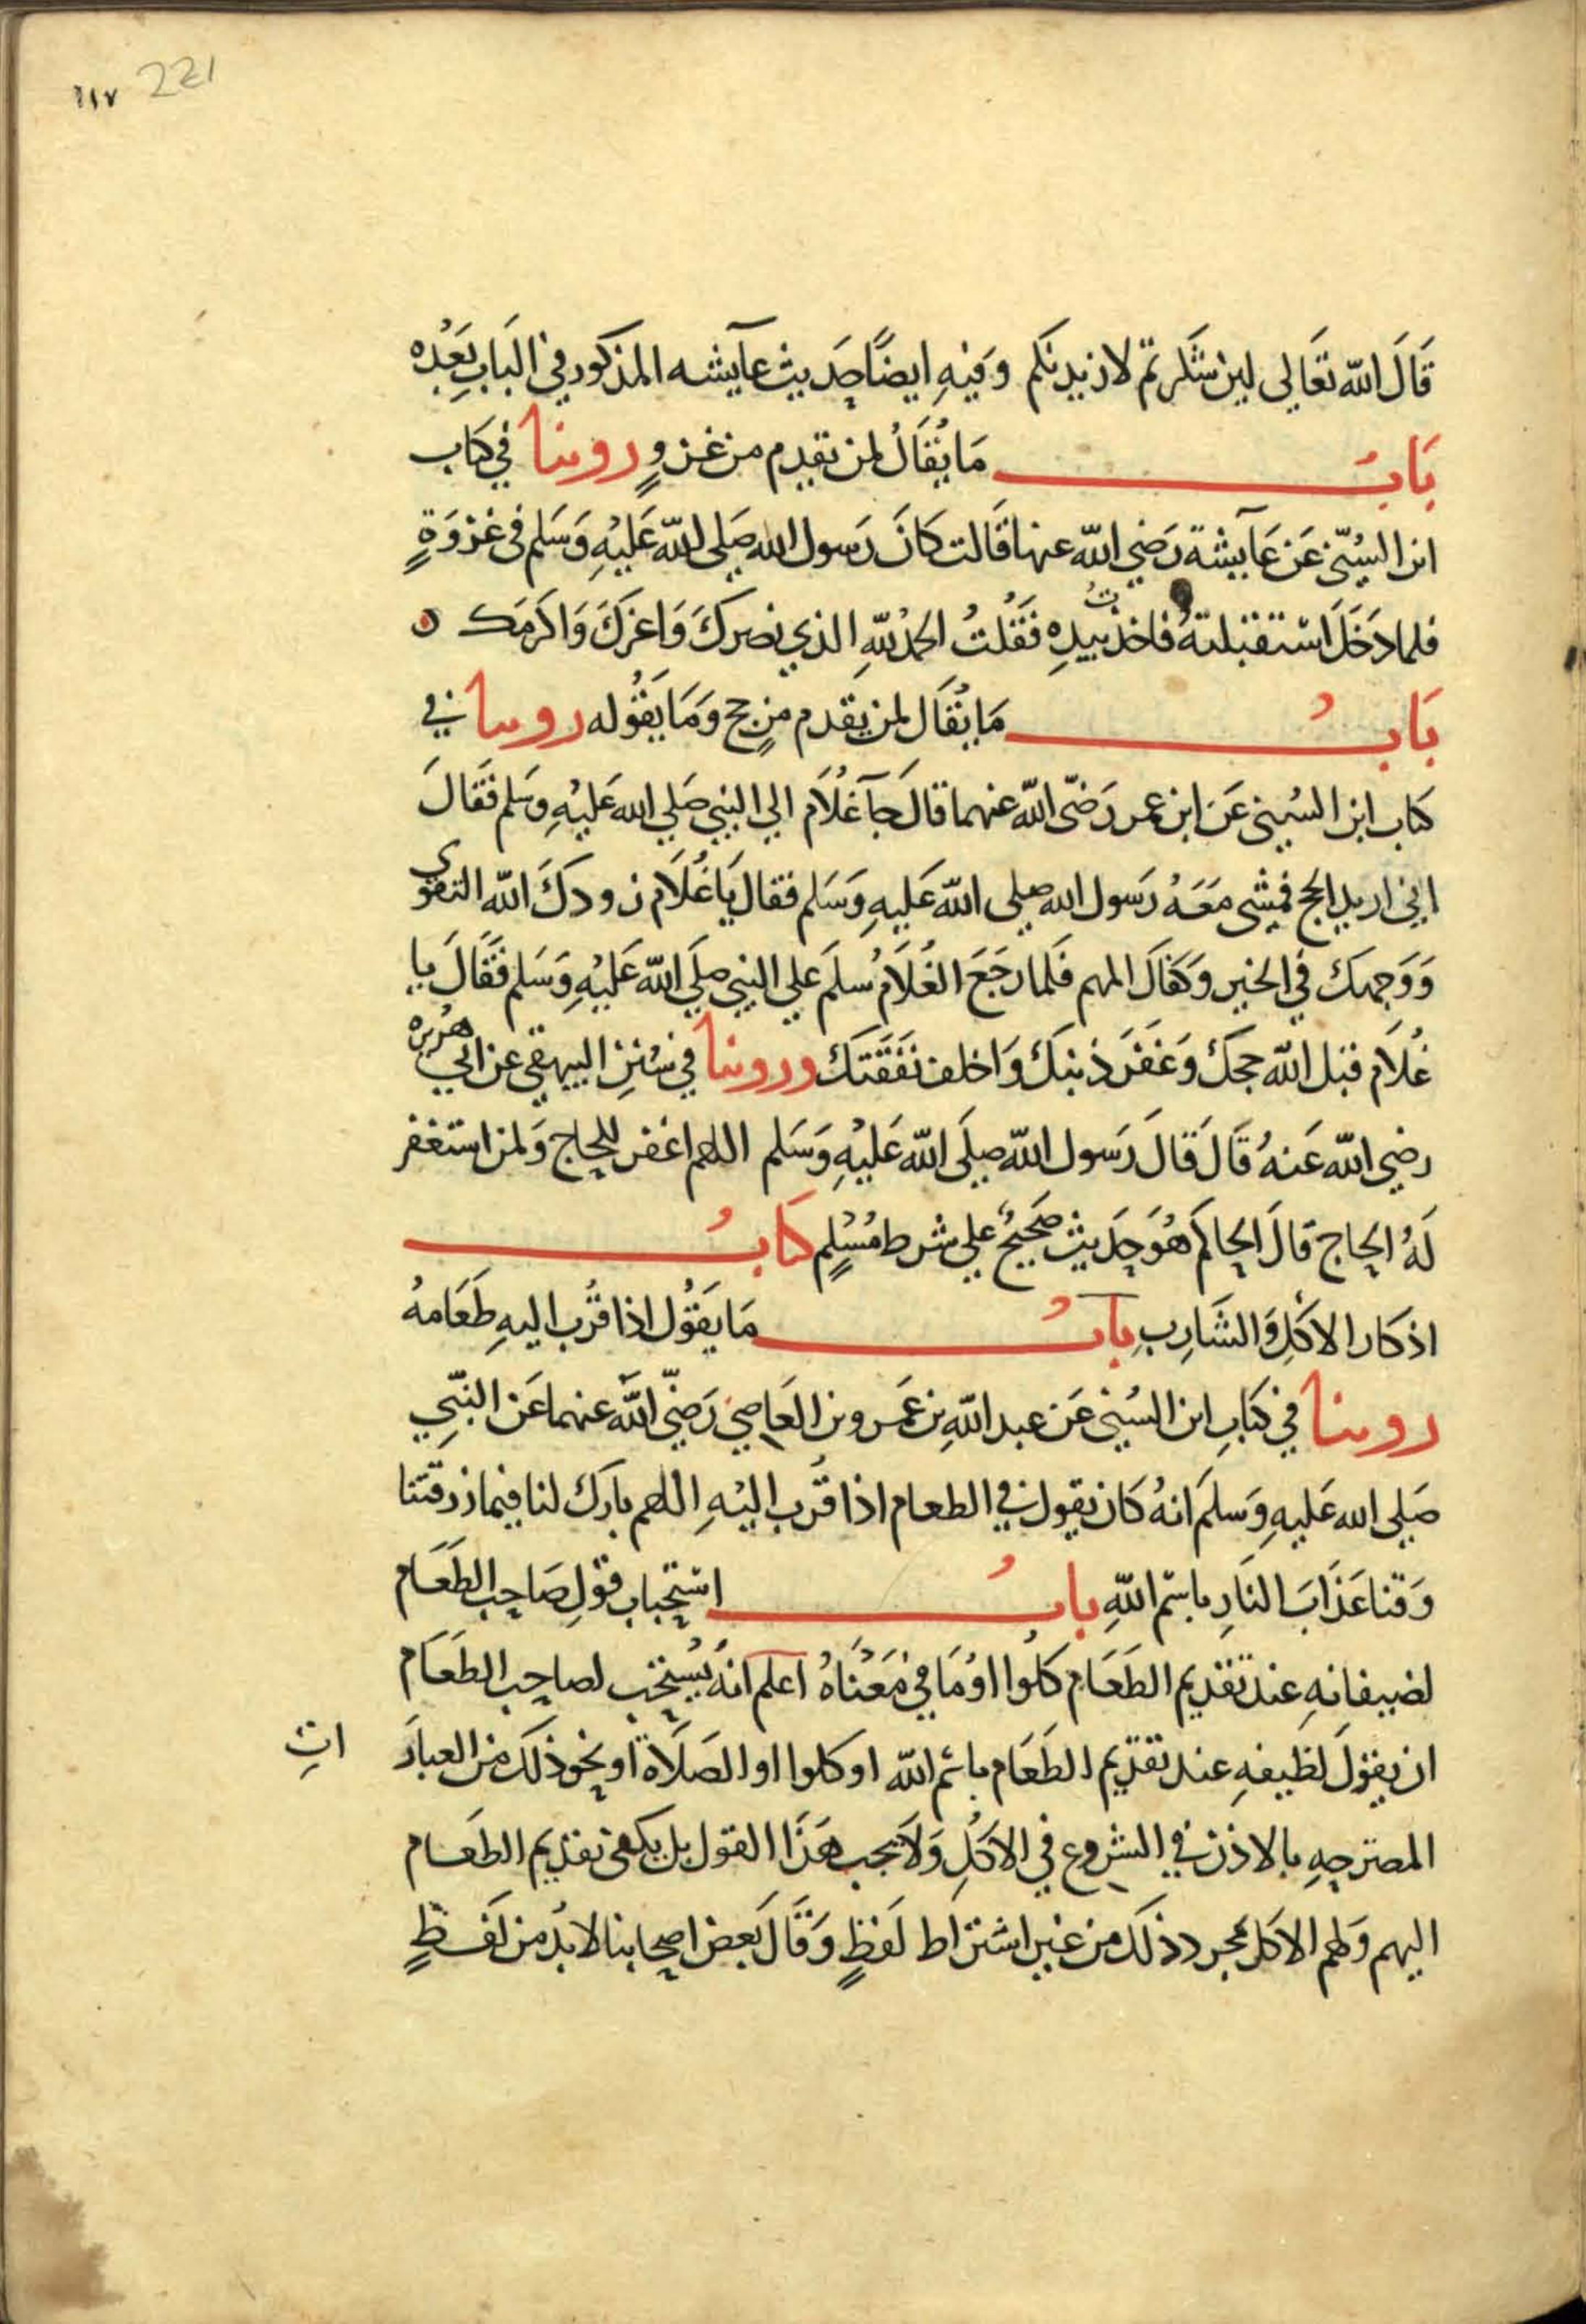 ١١٧ 221
قَالَ الله تعَالى لين شَكرتم لازيدنكم وَفيهِ ايضًا حَديث عآيشه المذكور في البَابِ بَعْده
بَابُ مَا يُقَالُ لمن تقدم من غزوٍ روينا في كتاب
ابن السُنّي عَن عَآيشة رَضي الله عنها قَالت كَانَ رَسول الله صَلى الله عَليْهِ وَسَلم في غزوَةٍ
فلما دَخَلَ استقبلتهُ فاخذت بيدِه فَقُلتُ الحمدُ للهِ الذي نصركَ وَاعزكَ وَاكرَمَك ٥
بَابُ مَا يُقَال لمن يقدم من حج وَمَا يَقُوله روينا في
كتاب ابن السُني عَن ابن عمر رَضي الله عنهما قال جَآ غُلَام الي النبي صَلي الله عَليْهِ وسَلم فَقَالَ
اني اريد الحج فمشى مَعَهُ رَسول الله صلى الله عَليهِ وَسَلم فقال يَا غُلَام زودكَ الله التقوى
وَوَجهك في الخير وَكفاك المهم فلما رجَعَ الغُلَامُ سلمَ علي النبي صلي الله عَليْهِ وَسَلم فَقَالَ يا
غُلَام قبل الله حجكَ وَغفرَ ذنبكَ وَاخلف نفَقَتكَ وروينا في سُنن البيهقي عن ابي هُريره
رضي الله عَنهُ قَالَ قالَ رَسول الله صلَى الله عَليْهِ وَسَلم اللهم اغفر للحاج وَلمن استغفر
لَهُ الحاج قالَ الحاكم هُوَ حَديث صَحيحٌ علي شرط مُسْلمٍ كتابُ
اذكار الاكلِ وَالشَارِبِ بابُ مَا يَقُول اذا قُرب اليهِ طَعَامهُ
روينا في كتَابِ ابن السُني عَن عبد اللهِ بن عَمرو بن العَاصي رَضي الله عنهما عَن النبِي
صَلى الله عَليهِ وَسلمَ انهُ كان يقول في الطعام اذا قُرب اليْهِ اللهم بارك لنا فيما رزقتنا
وَقنا عَذابَ النَارِ باسْم اللهِ بابُ استحباب قولِ صَاحِب الطعَام
لضيفانهِ عند تقديم الطعَام كلُوا اوْ مَا في مَعْناهُ اعلم انهُ يُستحب لصاحِب الطعَام
ان يقولَ لظيفهِ عند تقديم الطعَام باسْم الله او كلوا او الصلَاة او نحو ذلك من العبارَ اتِ
المصرحِهِ بالاذن في الشروع في الاكلِ وَلَا يجب هَذَا القول بل يكفي تقديم الطعَام
اليهم وَلهم الاكل بمجرد ذلك من غير اشتراط لَفظٍ وَقَالَ بَعض اصحابنا لا بدَ من لَفظٍ